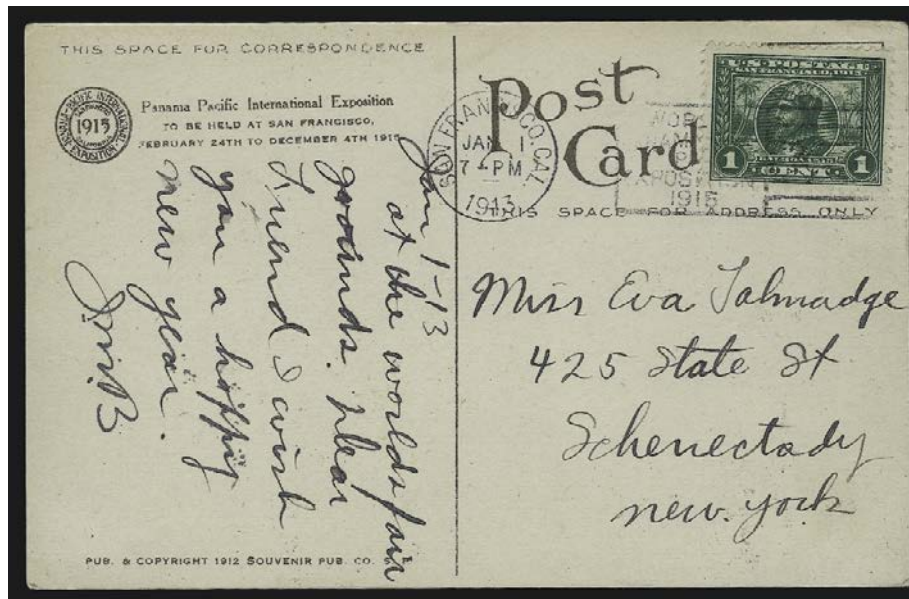 THIS SPACE FOR CORRESPONDENCE
PANAMA-PACIFIC INTERNATIONAL EXPOSITION
1915
Panama Pacific International Exposition
TO BE HELD AT SAN FRANCISCO,
FEBRUARY 24TH TO DECEMBER 4TH 1915
Jan 1-13
at the worlds fair
grounds. Dear
Friend I wish
you a happy
new year.
PUB. & COPYRIGHT 1912 SOUVENIR PUB. CO.
Post
Card
SAN FRANCISCO, CAL.
JAN 1
7-PM
1913
1915
U.S. POSTAGE
SAN FRANCISCO 1915
1 CENT 1
THIS SPACE FOR ADDRESS ONLY
Miss Eva Talmadge
425 State St
Schenectady
new. york